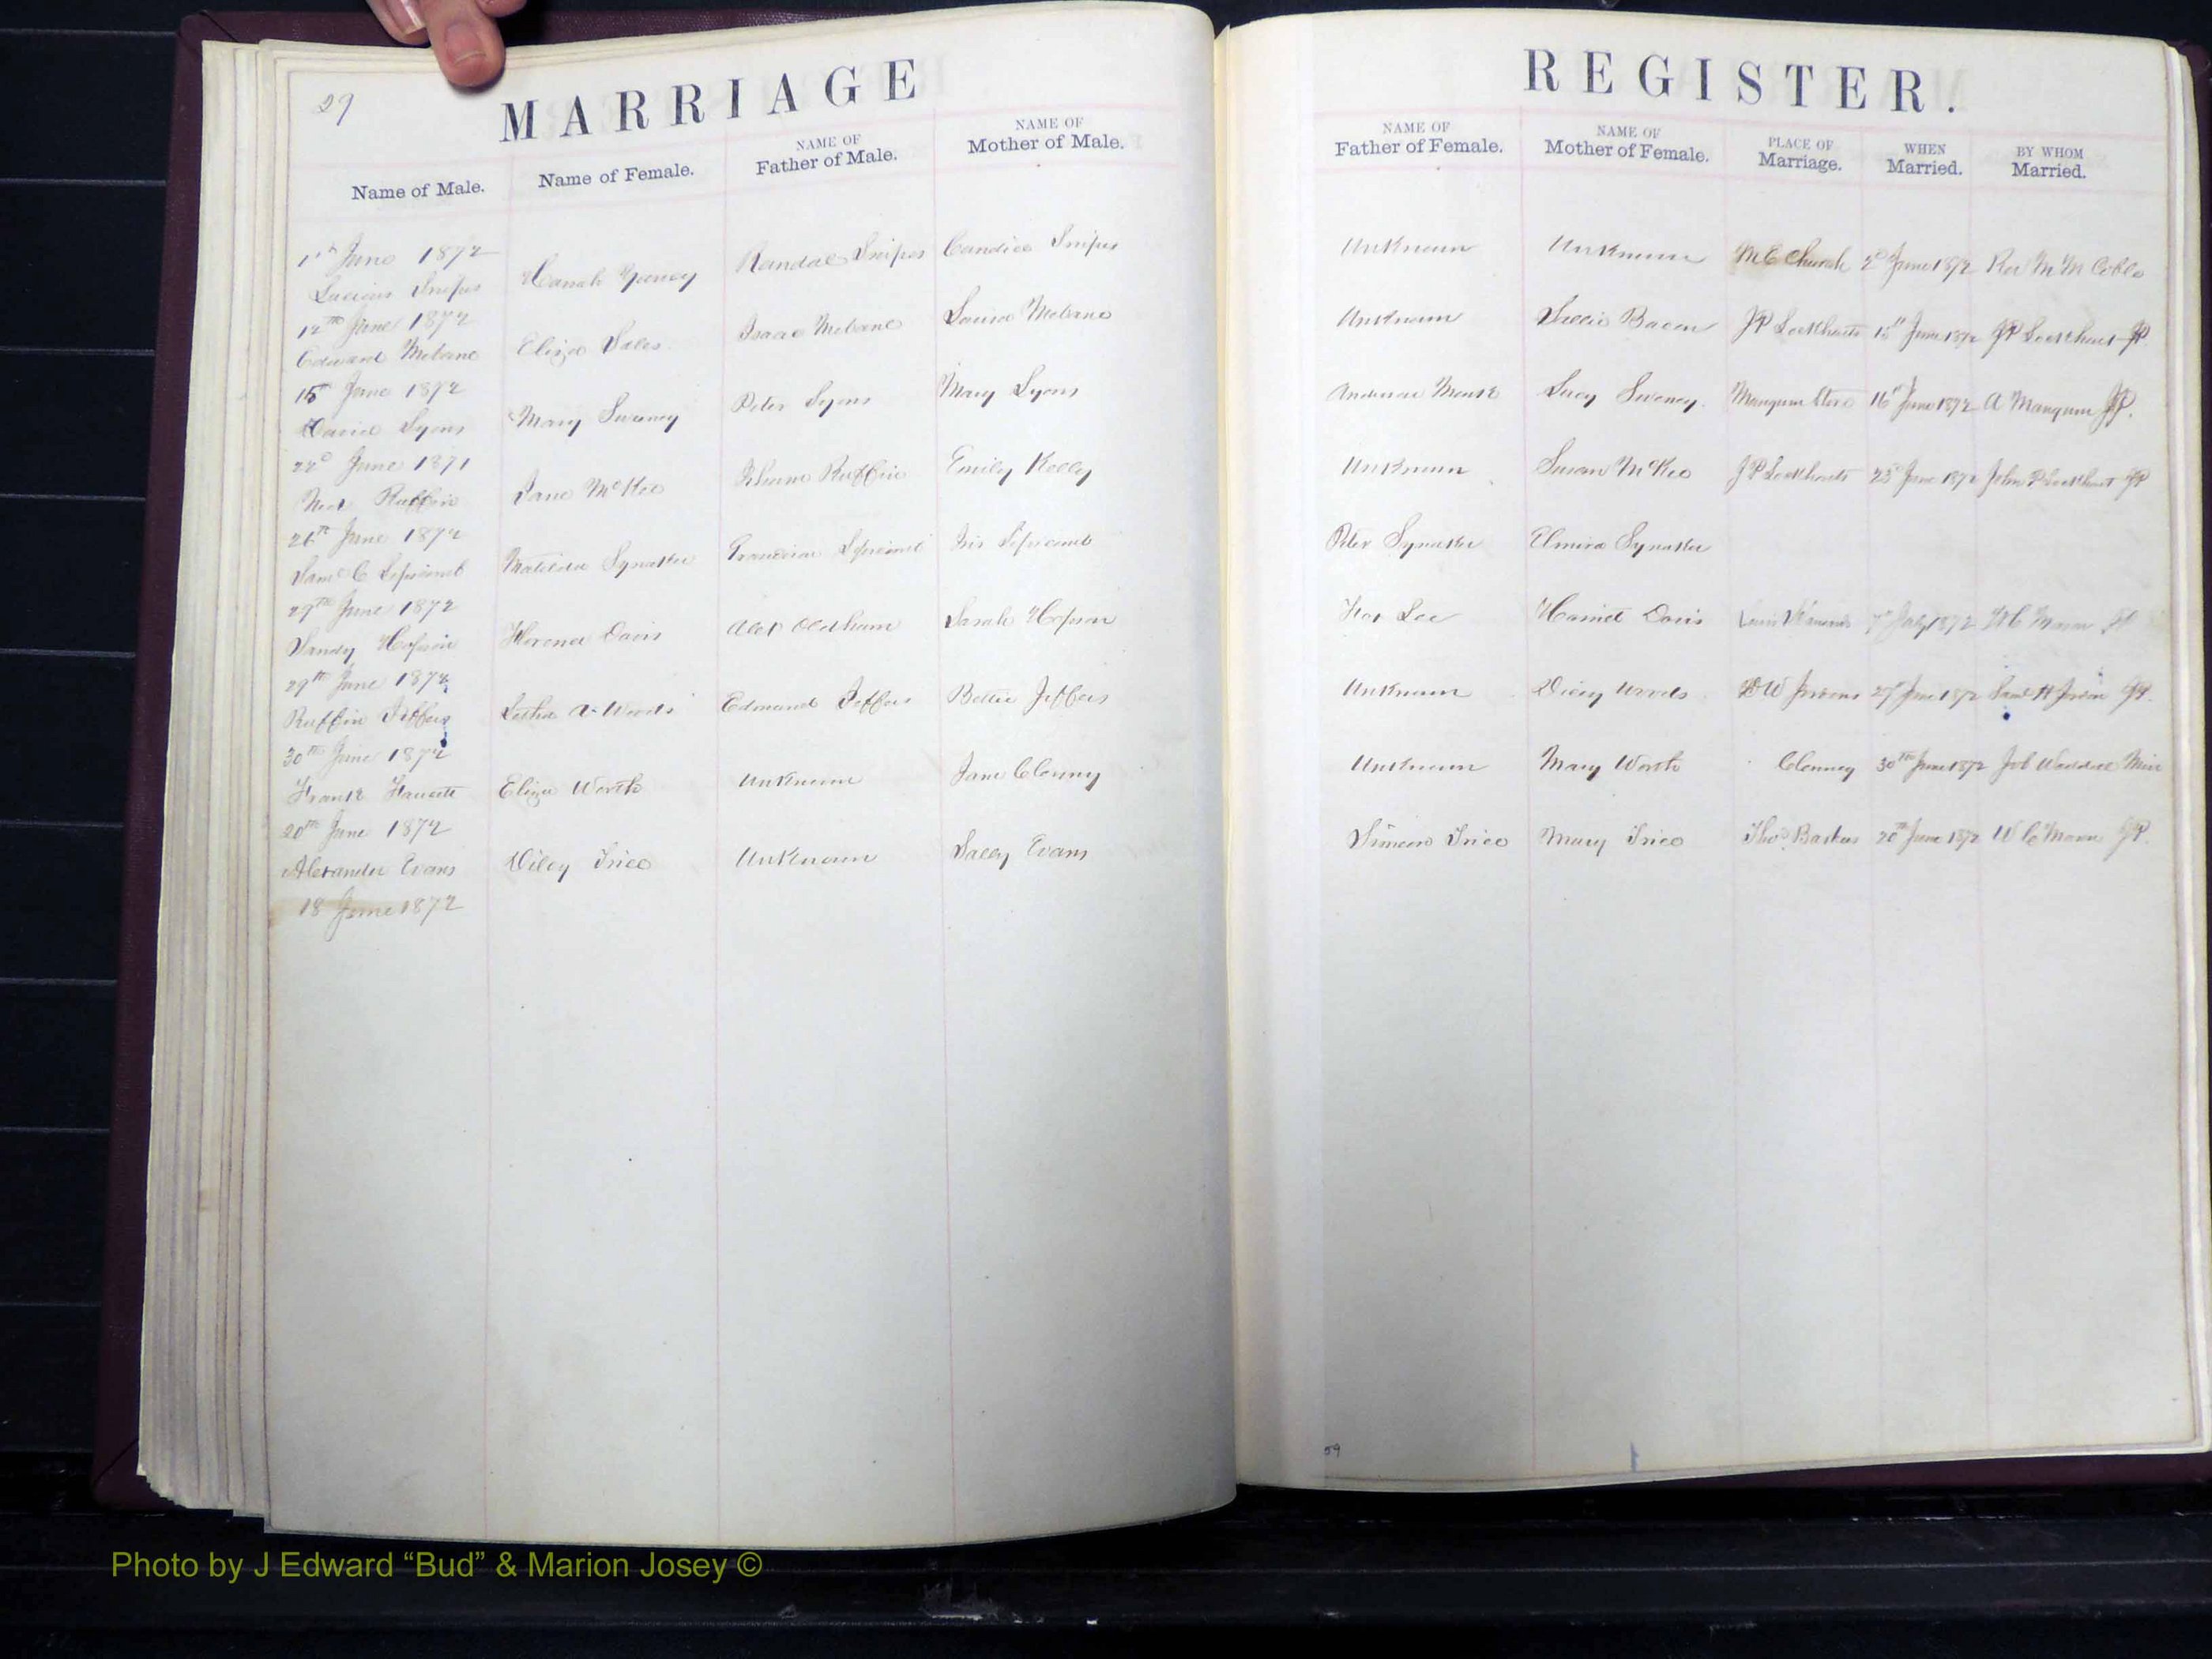 29
MARRIAGE REGISTER.
Name of Male. Name of Female. NAME OF Father of Male. NAME OF Mother of Male. NAME OF Father of Female. NAME OF Mother of Female. PLACE OF Marriage. WHEN Married. BY WHOM Married.
1st June 1872
Lucious Snipes Hanah Yancy Randal Snipes Candice Snipes Unknown Unknown M E Church 2d June 1872 Rev M M Coble
12th June 1872
Edward Mebane Eliza Isaac Mebane Louisa Mebane Unknown Bacon J P Lockharts 15th June 1872 J P Lockhart JP.
15th June 1872
David Lyons Mary Sweney Peter Lyons Mary Lyons Anderson Lucy Sweney. Mangum Store 16th June 1872 A Mangum JP.
22d June 1871
Ned Ruffin Jane McKee Ruffin Emily Kelly Unknown Susan McKee J P Lockharts 23d June 1872 John P Lockhart JP
26th June 1872
Saml C Matilda Peter Elmira
29th June 1872
Sandy Hopson Florence Davis Alex Oldham Sarah Hopson Lee Harriet Davis 7th July 1872 W C Mason JP
29th June 1872
Ruffin Jeffers Woods Edmund Jeffers Bettie Jeffers Unknown Dicey Woods D W Jordons 29th June 1872 Saml H Jordon JP.
30th June 1872
Frank Faucett Eliza Worth Unknown Jane Clenny Unknown Mary Worth Clenney 30th June 1872 Job Waddell Min
20th June 1872
Alexander Evans Dilcy Trice Unknown Sally Evans Simeon Trice Mary Trice Thos. Barbees 20th June 1872 W C Mason JP.
18 June 1872
59
Photo by J Edward “Bud” & Marion Josey ©